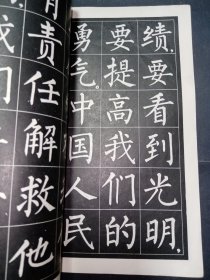 绩,要看到光明,
要提高我们的
勇气。中国人民
责任解救他